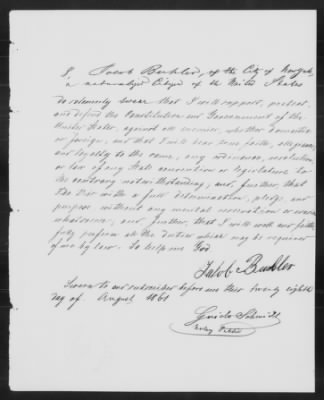 I, Jacob Buhler, of the City of
a naturalized Citizen of the United States
do solemnly swear that I will support, protect,
and defend the Constitution and Government of the
United States, against all enemies, whether domestic
or foreign, and that I will bear true faith, allegiance,
and loyalty to the same, any ordinance, resolution,
or law of any State convention or legislature to
the contrary notwithstanding; and, further, that
I do this with a full determination, pledge, and
purpose without any mental reservation or evasion
whatsoever; and, further, that I will well and faith-
fully perform all the duties which may be required
of me by law. So help me God
Jacob Buhler
Sworn to and subscribed before me this twenty eighth
day of August 1861
Guido Schmidt